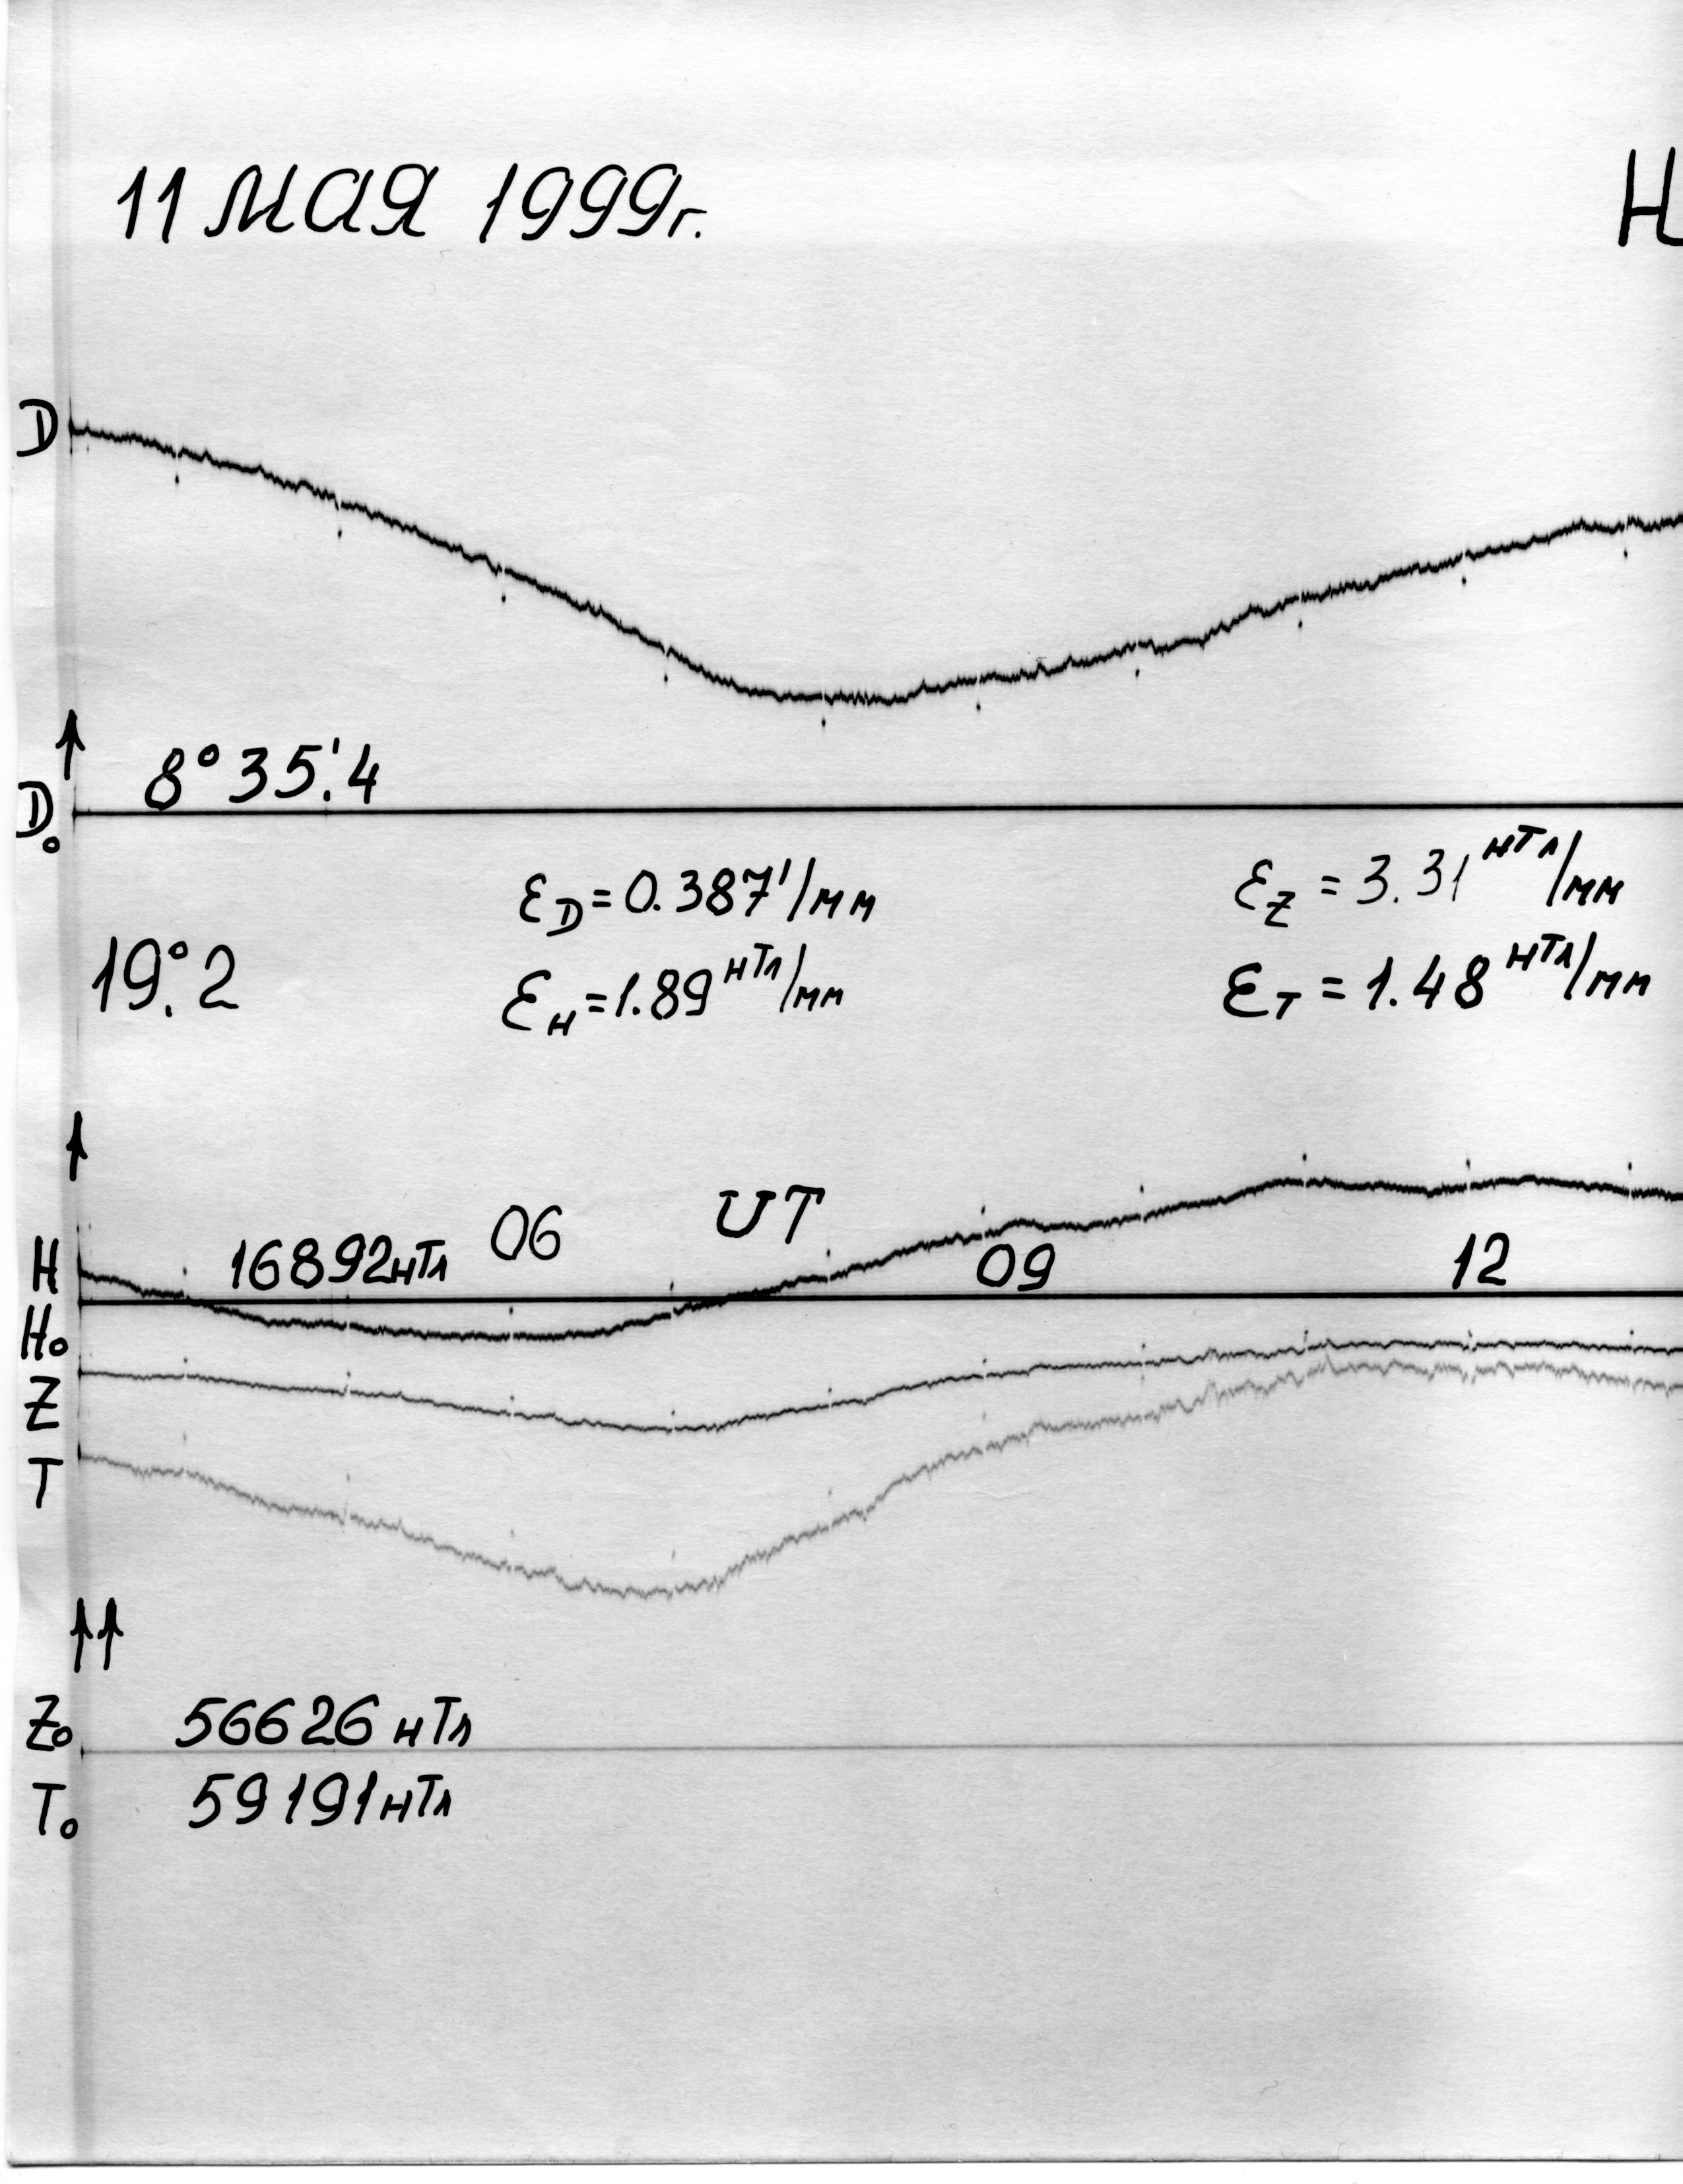 11 мая 1999г.
Н
D
8°35.'4
D₀
ε_D = 0.387'/мм
ε_Z = 3.31 нТл/мм
19.°2
ε_H = 1.89 нТл/мм
ε_T = 1.48 нТл/мм
06 UT
H 16892нТл 09 12
H₀
Z
T
Z₀ 56626 нТл
T₀ 59191нТл